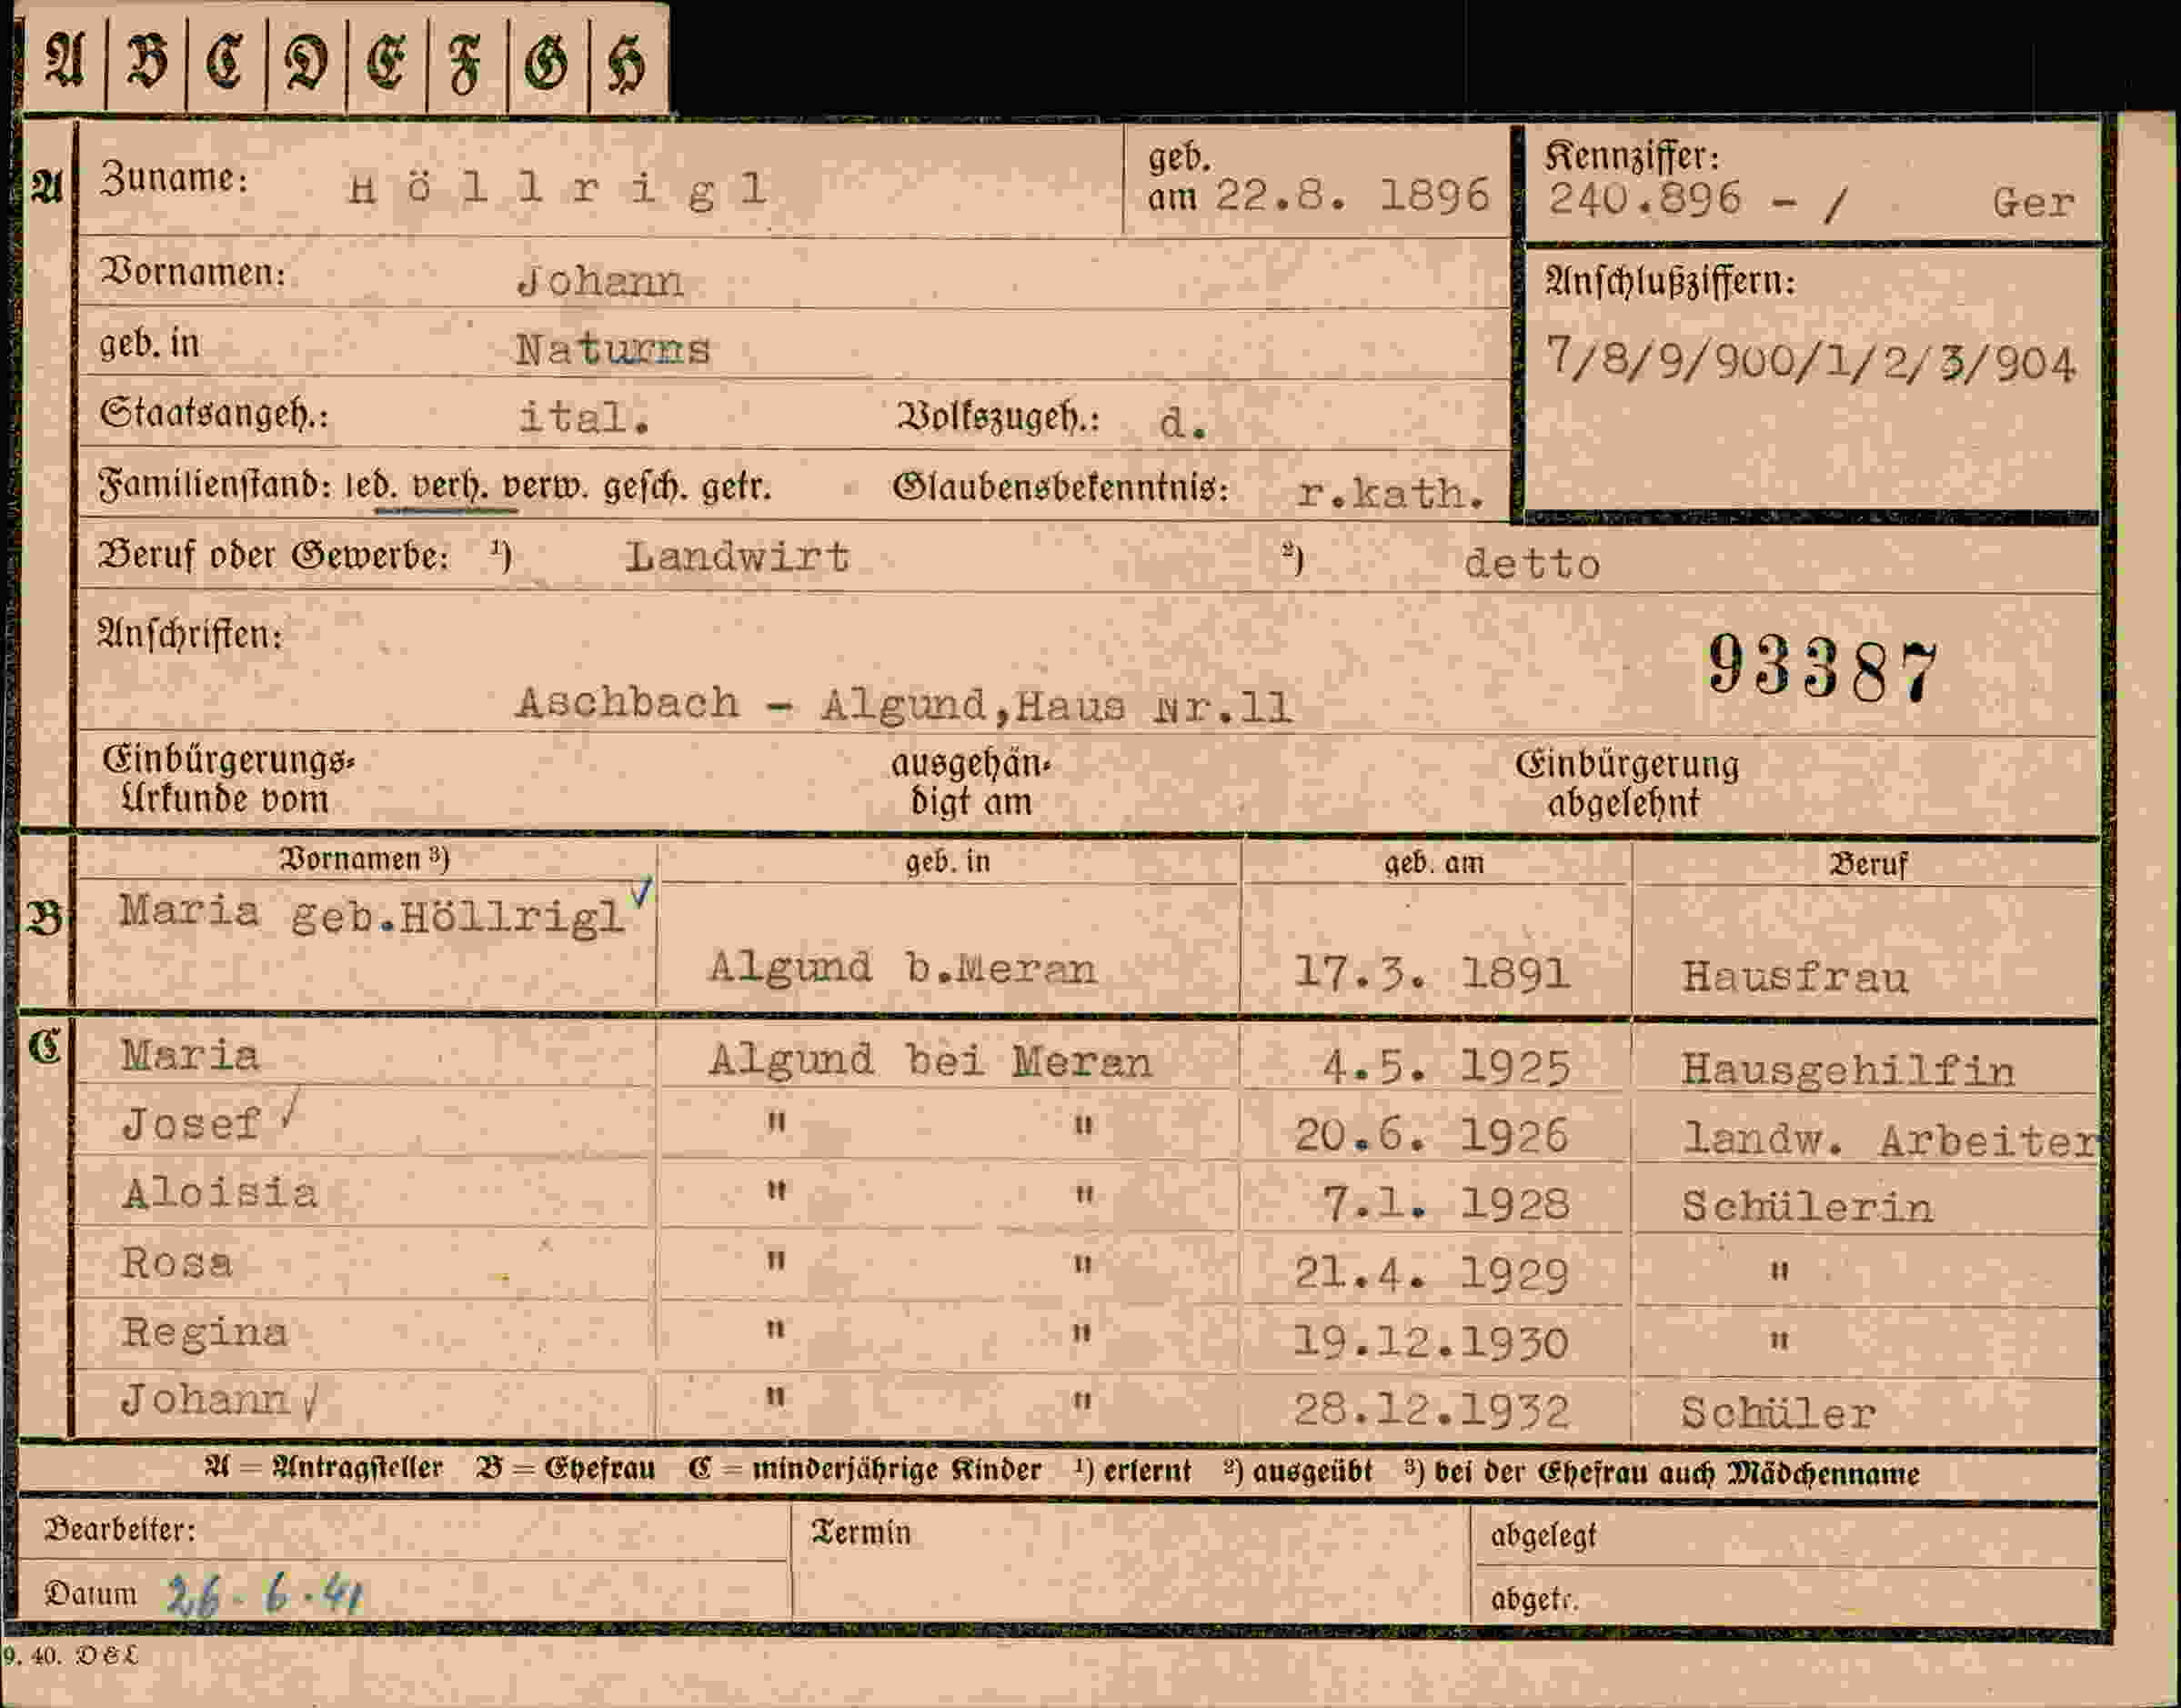 A B C D E F G H
A Zuname: Höllrigl geb. am 22.8. 1896 Kennziffer: 240.896 - / Ger
Vornamen: Johann Anschlußziffern:
geb. in Naturns 7/8/9/900/1/2/3/904
Staatsangeh.: ital. Volkszugeh.: d.
Familienstand: led. verh. verw. gesch. getr. Glaubensbekenntnis: r.kath.
Beruf oder Gewerbe: ¹) Landwirt ²) detto
Anschriften: 93387
Aschbach - Algund,Haus Nr.11
Einbürgerungs- ausgehän- Einbürgerung
Urkunde vom digt am abgelehnt
Vornamen ³) geb. in geb. am Beruf
B Maria geb.Höllrigl ✓
Algund b.Meran 17.3. 1891 Hausfrau
C Maria Algund bei Meran 4.5. 1925 Hausgehilfin
Josef ✓ " " 20.6. 1926 landw. Arbeiter
Aloisia " " 7.1. 1928 Schülerin
Rosa " " 21.4. 1929 "
Regina " " 19.12.1930 "
Johann ✓ " " 28.12.1932 Schüler
A = Antragsteller B = Ehefrau C = minderjährige Kinder ¹) erlernt ²) ausgeübt ³) bei der Ehefrau auch Mädchenname
Bearbeiter: Termin abgelegt
Datum 26.6.41 abgetr.
9. 40. D&L